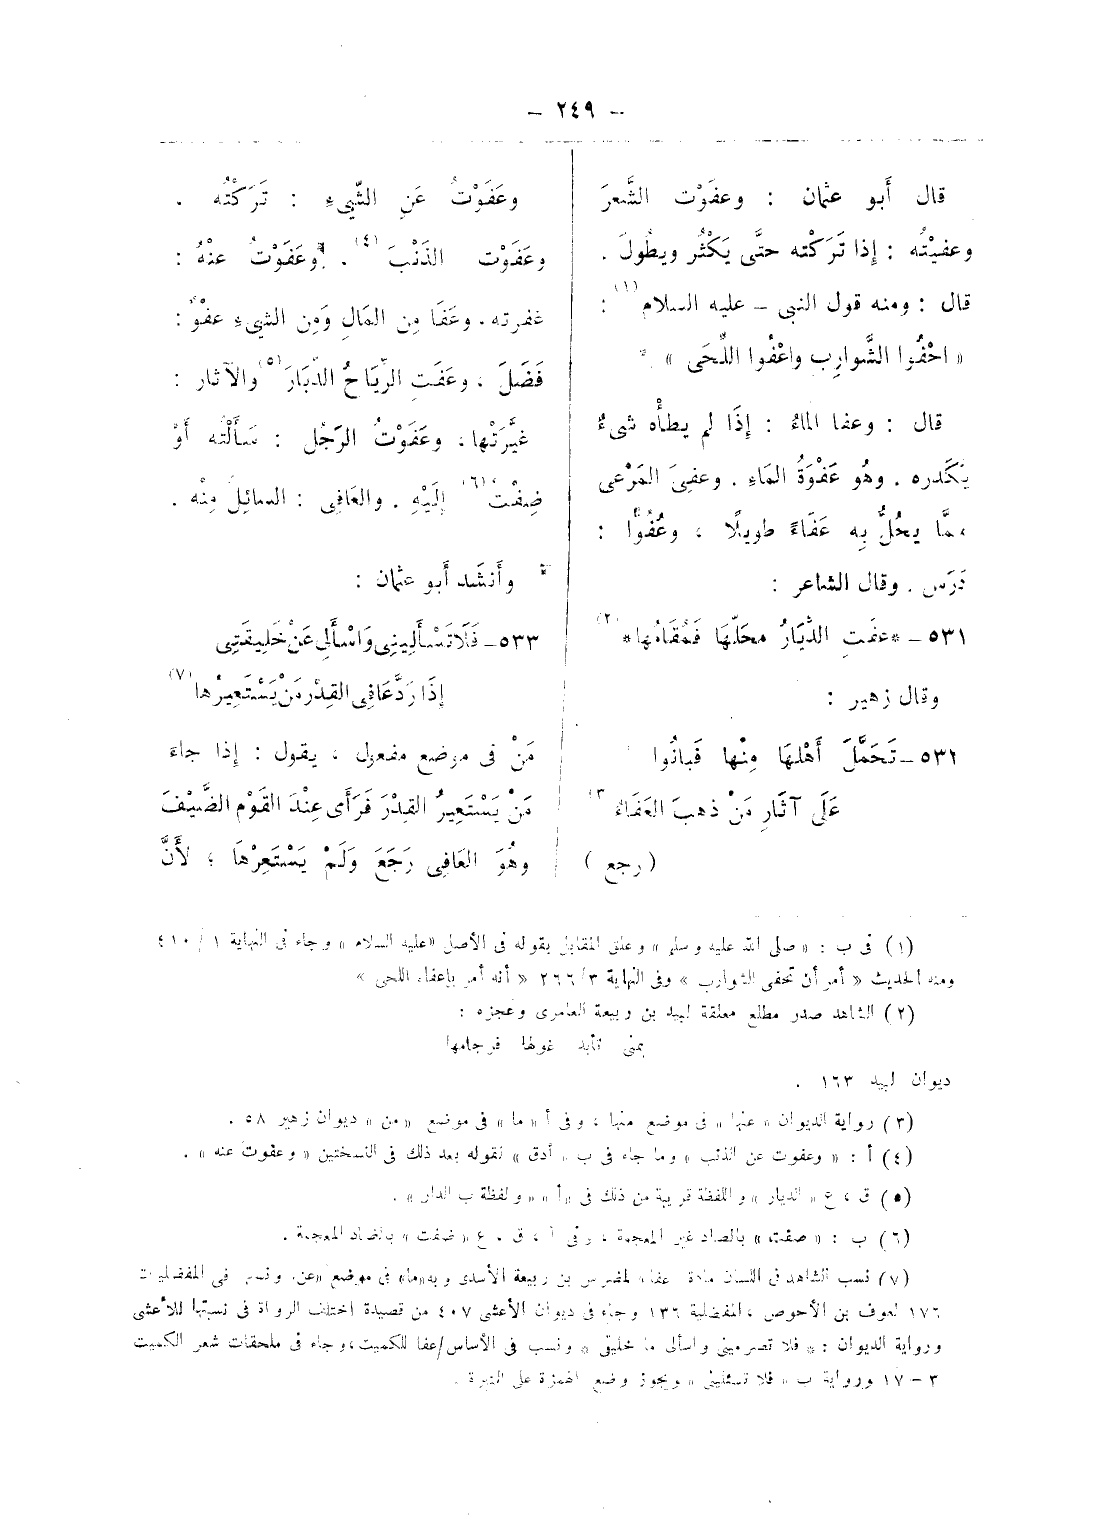 – ٢٤٩ –
قال أبو عثمان : وعفَوْت الشَّعرَ
وعفيْتُه : إذا تَرَكْته حتَّى يَكْثُر ويطُولَ .
قال : ومنه قول النبى – عليه السلام (١) :
« احْفُوا الشَّوارِب واعْفُوا اللِّحَى »
قال : وعفا الماءُ : إذَا لم يطأْه شىءٌ
يُكَدره . وهُو عَفْوَةُ المَاءِ . وعفِىَ المَرْعى
ممَّا يحُلُّ بِه عَفَاءً طويلًا ، وعُفُوًّا :
دَرَس . وقال الشاعر :
٥٣١ – *عفَتِ الدِّيَارُ محَلّهَا فَمُقَامُها* (٢)
وقال زهير :
٥٣٢ – تَحَمَّلَ أَهْلهَا مِنْها فَبانُوا
عَلَى آثَارِ مَنْ ذهبَ العَفَاءُ (٣)
( رجع )
وعَفَوْتُ عَنِ الشَّىءِ : تَرَكْتُه .
وعَفَوْت الذَنْبَ (٤) . وعَفَوْتُ عنْهُ :
غفرته . وعَفَا مِن المَالِ وَمِن الشىءِ عفْوٌ :
فَضَلَ ، وعَفَتِ الرِّيَاحُ الدِّبَارَ (٥) والآثار :
غيَّرَتْها ، وعَفَوْتُ الرَجُل : سَأَلْتُه أَوْ
ضِفْتُ (٦) إلَيْهِ . والعَافِى : السائِلَ مِنْه .
* وأَنشَد أبو عثمان :
٥٣٣ – فَلَا تَسْأَلِينِى وَاسْأَلِى عَنْ خَلِيقَتِى
إِذَا رَدَّ عَافِى القِدْرِ مَنْ يَسْتَعِيرُها (٧)
مَنْ فى موضع مفعول ، يقول : إذا جاءَ
مَنْ يَسْتَعِيرُ القِدْرَ فَرَأَى عِنْدَ القَوْم الضَّيْفَ
وهُوَ العَافِى رَجَعَ وَلَمْ يَسْتَعِرْهَا ؛ لأَنَّ
(١) فى ب : « صلى الله عليه وسلم » وعلق المقابل بقوله فى الأصل «عليه السلام » وجاء فى النهاية ١ / ٤١٠
ومنه الحديث « أمر أن تحفى الشوارب » وفى النهاية ٣ / ٢٦٦ « أنه أمر بإعفاء اللحى »
(٢) الشاهد صدر مطلع معلقة لبيد بن ربيعة العامرى وعجزه :
بمنى تأبد غولها فرجامها
ديوان لبيد ١٦٣ .
(٣) رواية الديوان « عنها » فى موضع منها ، وفى أ « ما » فى موضع « من » ديوان زهير ٥٨ .
(٤) أ : « وعفوت عن الذنب » وما جاء فى ب « أدق » لقوله بعد ذلك فى النسختين « وعفوت عنه » .
(٥) ق ، ع « الديار » واللفظة قريبة من ذلك فى «أ » « ولفظة ب الدار » .
(٦) ب : « صفت » بالصاد غير المعجمة ، وفى أ ، ق . ع « ضفت » بالضاد المعجمة .
(٧) نسب الشاهد فى اللسان مادة عفا لمضرس بن ربيعة الأسدى وبه«ما» فى موضع «عن» ونسب فى المفضليات
١٧٦ لعوف بن الأحوص ، المفضلية ١٣٦ وجاء فى ديوان الأعشى ٤٠٧ من قصيدة اختلف الرواة فى نسبتها للأعشى
ورواية الديوان : * فلا تصرمينى واسألى ما خليقتى * ونسب فى الأساس/عفا للكميت ، وجاء فى ملحقات شعر الكميت
٣ – ١٧ ورواية ب « فلا تسئلينى » ويجوز وضع الهمزة على النبرة .